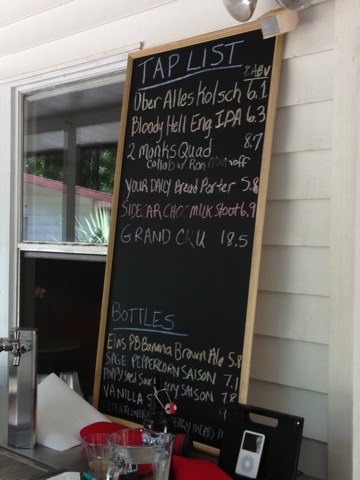 TAP LIST
% ABV
Über Alles Kolsch 6.1
Bloody Hell Eng IPA 6.3
2 Monks Quad 8.7
Collab w/ Ron
YOUR DAILY Bread Porter 5.8
SIDECAR CHOC MILK Stout 6.9
GRAND CRU 18.5
BOTTLES
Elvis PB Banana Brown Ale 5.8
SAGE PEPPERCORN SAISON 7.1
SAISON 7.8
VANILLA